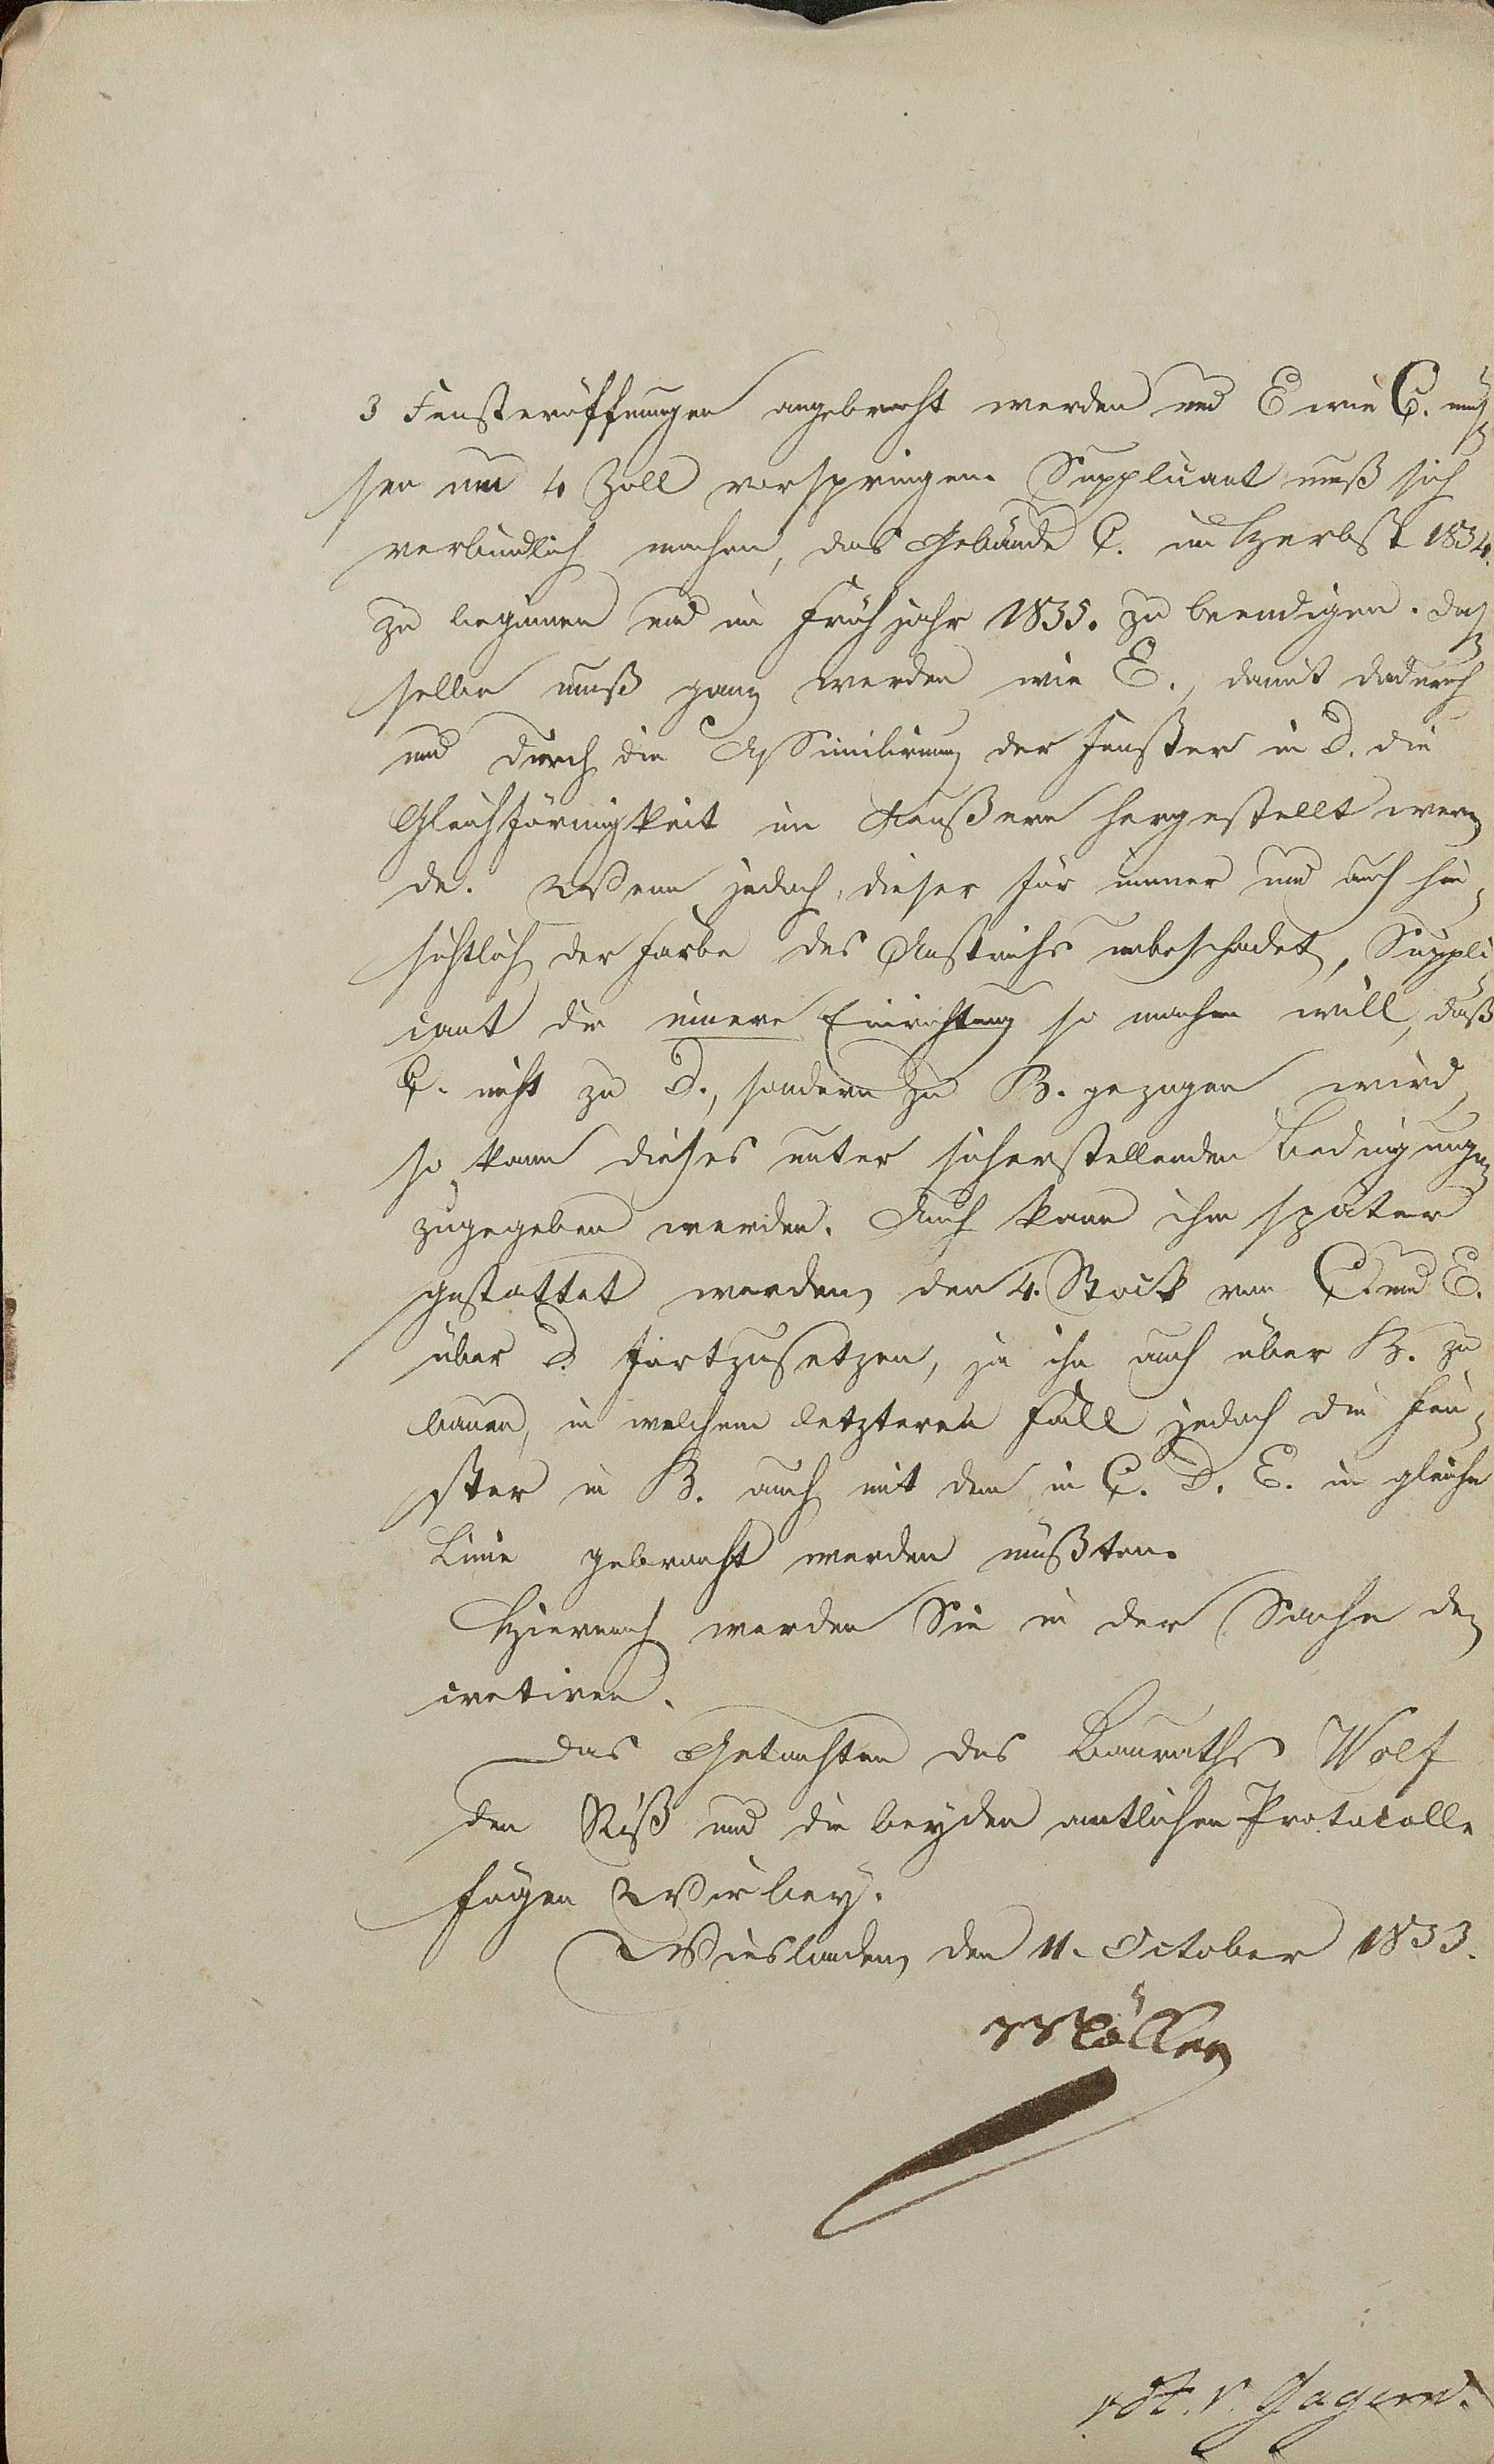 3 Fensteröffnungen angebracht werden und E wie C. müs=
sen um 4 Zoll vorspringen. Supplicant muß sich
verbindlich machen, das Gebäude C. im Herbst 1834.
zu beginnen und im Frühjahr 1835. zu beendigen. Das=
selbe muß ganz werden wie E., damit dadurch
und durch die Assimilirung der Fenster in D. die
Gleichförmigkeit im Aeußern hergestellt wer=
de. Wenn jedoch, dieser für immer und auch hin=
sichtlich der Farbe des Anstrichs unbeschadet, Suppli=
cant die innere Einrichtung so machen will, daß
C. nicht zu D., sondern zu B. gezogen wird,
so kann dieses unter sicherstellenden Bedingungen
zugegeben werden. Auch kann ihm später
gestattet werden, den 4. Stock von C. und E.
über D. fortzusetzen, ja ihn auch über B. zu
bauen, in welchem letzteren Fall jedoch die Fen=
ster in B. auch mit den in C. D. E. in gleiche
Linie gebracht werden müßten.
Hiernach werden Sie in der Sache de=
cretiren.
Das Gutachten des Bauraths Wolf
den Riß und die beyden amtlichen Protocolle
fügen Wir bey.
Wiesbaden, den 11. October 1833.
Möller
vdt. v. Gagern.